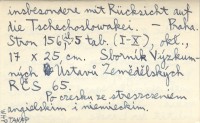 insbesondere mit Rücksicht auf
die Tschechoslovakei. - Praha.
Stron 156, 5 tab. (I-X), okt.,
17 x 25 cm. Sborník Výzkum-
ných Ústavů Zemědělských
RČS 65.
Po czesku ze streszczeniem
angielskim i niemieckim.